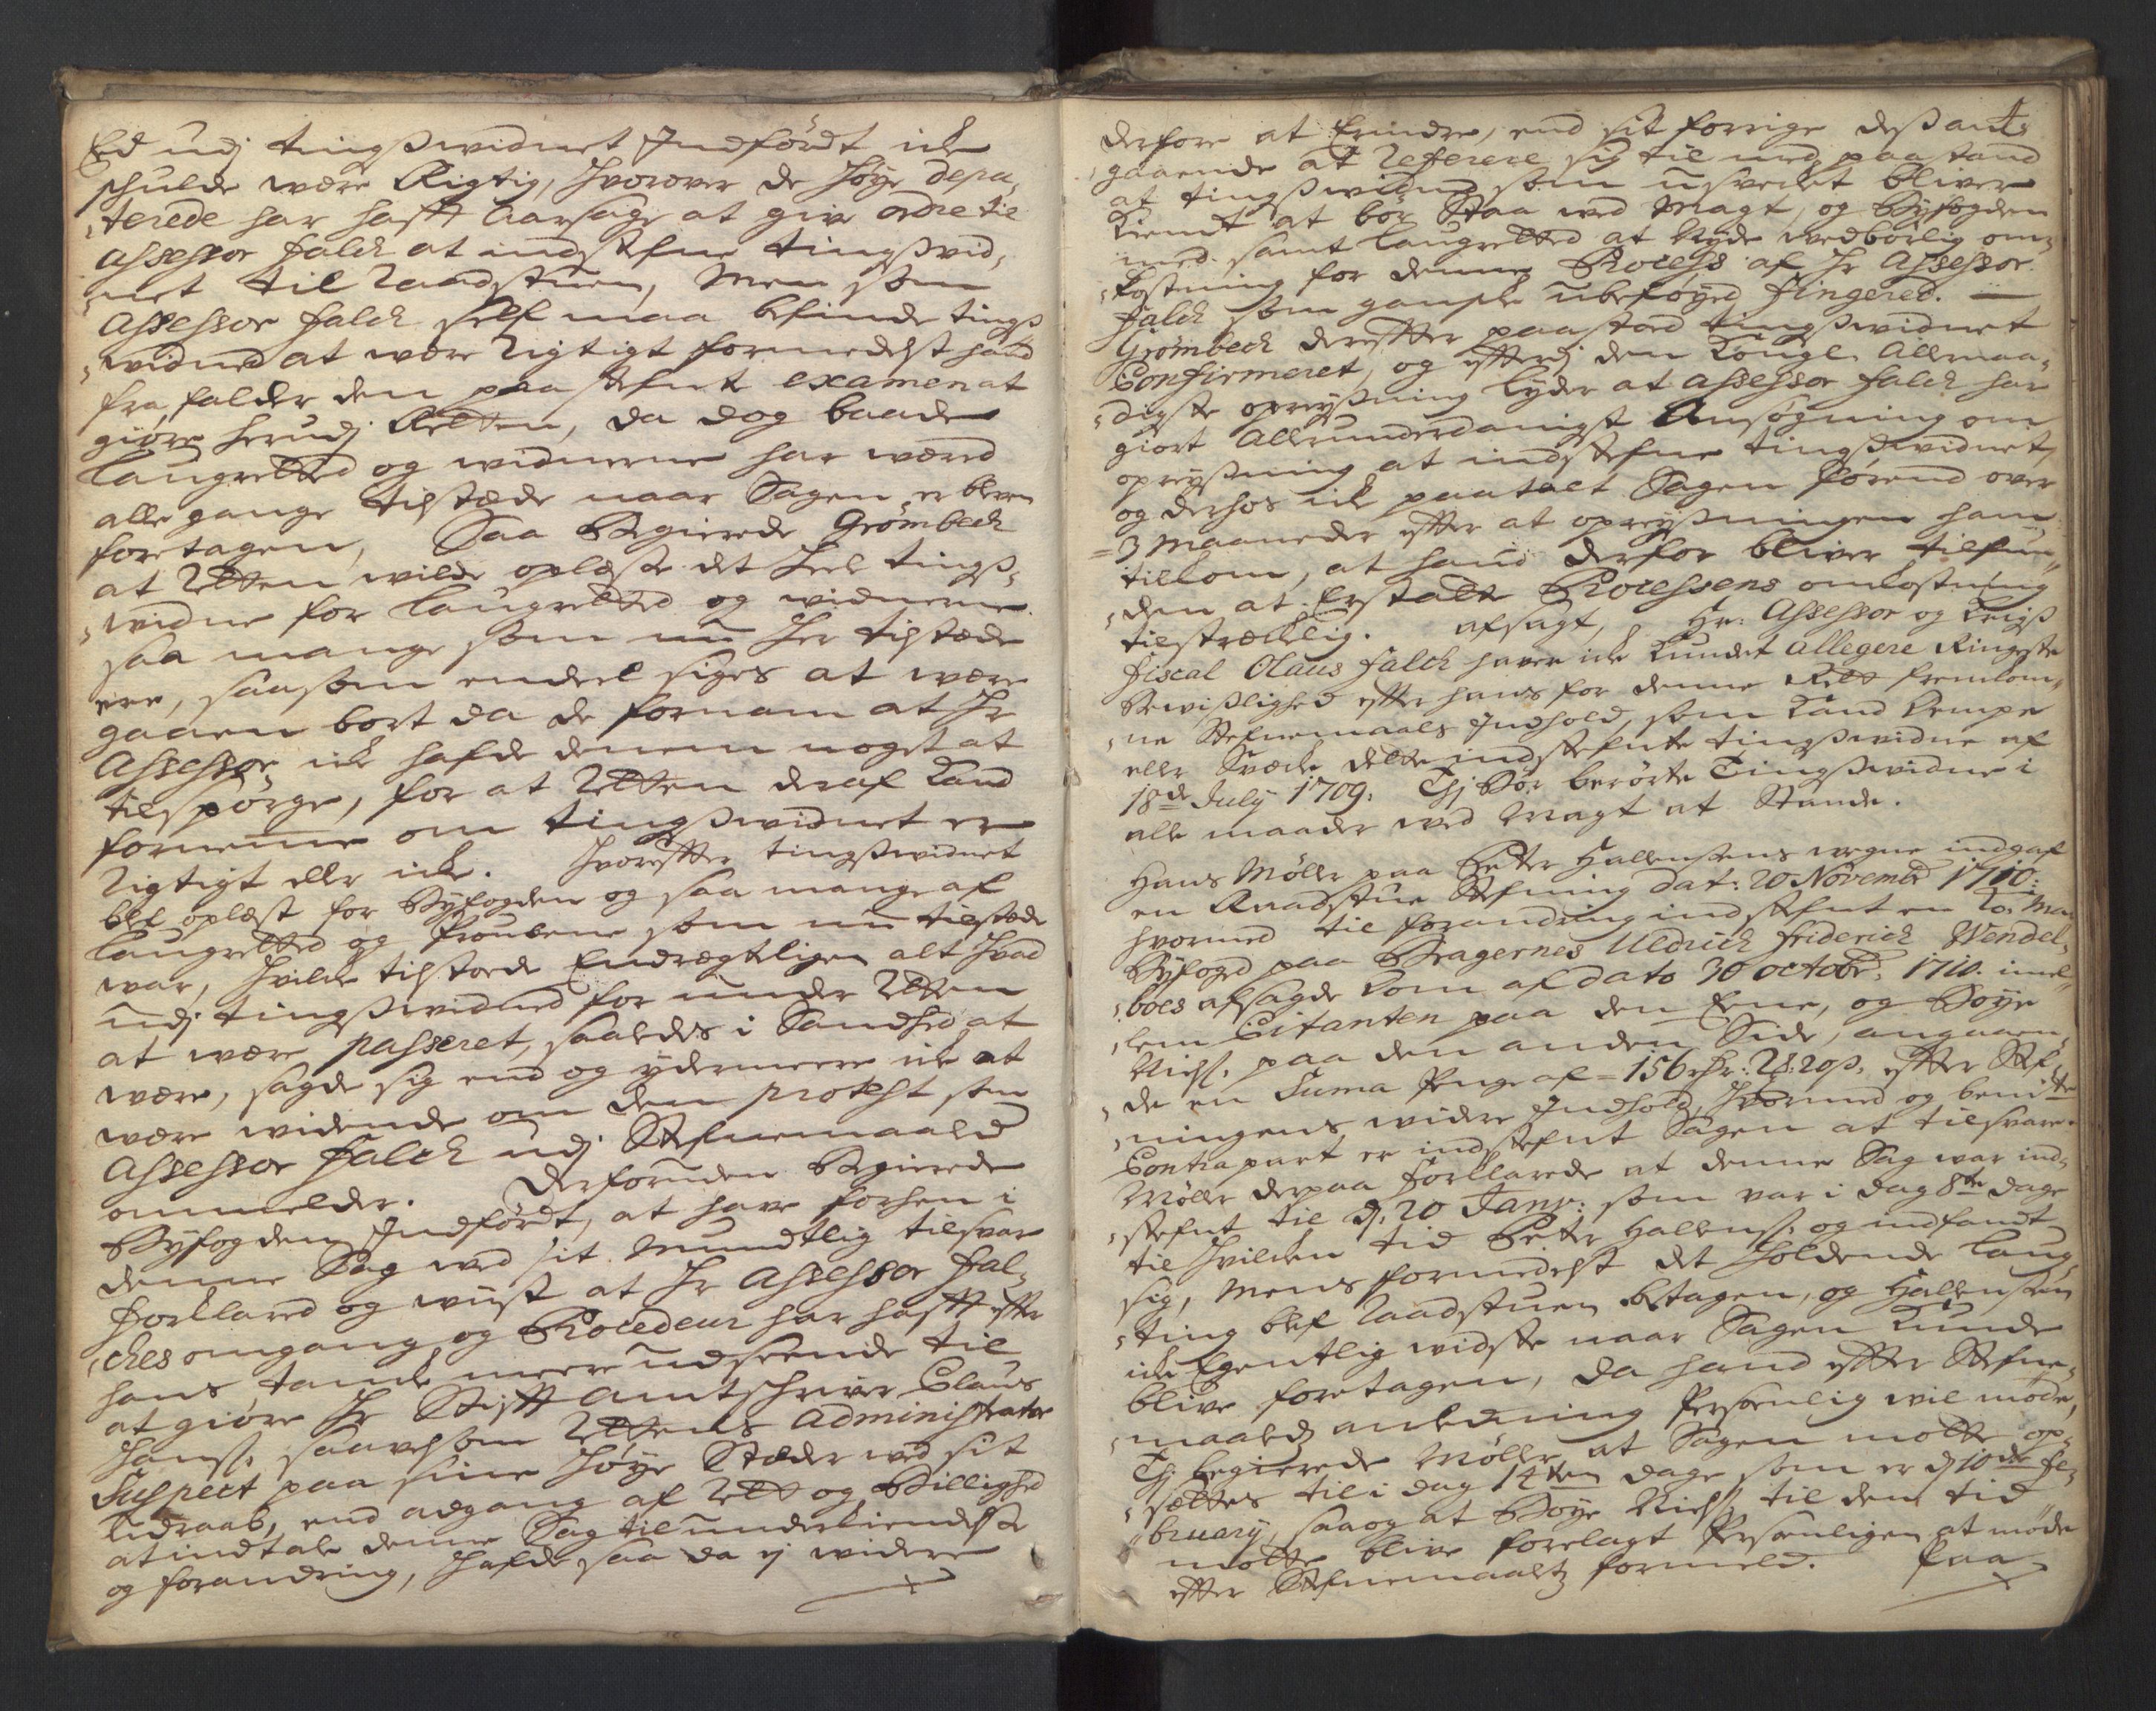 Ed udj tingsswidnet Indfördt ick
schulde være Rigtig, hvorover de höye depu,
,terede har hafft aarsage at give ordre til
Assessor Falch at indstefne tingsvid,
,net til Raadstuen, Men som
Assessor Falch self maa befinde tings
,vidned at være rigtigt formedelst hand
fra falder den paastefnt examen at
giøre herudj Retten, da dog baade
Laugretted og vidnerne har værd
alle gange tilstæde naar Sagen er bleven
foretagen, Saa Begierede Grömbech
at Retten wilde oplæse det heele tings,
,widne for Laugretted og vidnerne
saa mange som nu her tilstæde
ere, saasom endeel siges at være
gaaen bort da de fornam at Hr
Assessor ick hafde dennem noget at
tilspörge, for at Retten deraf kand
fornemme om tingsswidnet er
Rigtigt eller icke. Hvorefter tingsswidnet
blef oplæst for Byfogden og saa mange af
Laugretted og Prouberne som nu tilstæde
var, hvilcke tilstoede Endrægteligen alt hvad
udj tingsswidned for under Retten
at være passeret, saaledes i Sandhed at
være, sagde sig end og ydermeere ick at
være vidende om den protest som
Assessor Falch udj Stefnemaaled
ommelder. Derforuden Begierede
Byfogden Indfördt, at have forhen i
denne Sag ved sit Mundtlig tilsvar
forklared og viist at Hr Assessor Fal,
,ches omgang og Procedeur har hafft efter
hans tancke meere udseende til
at giöre Hr Stifft Amtschriver Claus
Hanss: saavelsom Rettens Administrator
Suspect paa sine höye Stæder ved sit
Lidraab, end adgang af Rett og Billighed
at indtale denne Sag til underkiendelse
og forandring, hafde saa da ej widere
derfore at Erindre, end sit forrige dessan,
,gaaende at Refferere sig til med paastand
at tingsswidned som usvecket bliver
kiendt at bör staa ved Magt, og Byfogden
med samt Laugretted at Nyde vedbörlig om,
,kostning for denne Process af Hr Assessor
Falch som gandske ubeföyed fingered.
Grömbech derefter paastoed tingsswidnet
Confirmeret, og efterdj den Kongl. Allernaa,
,digste opreyssning lyder at Assessor Falch har
giort Allerunderdanigst Ansögning om
opreyssning at indstefne tingsswidnet,
og derhos ick paatalt Sagen förend over
3 Maaneder efter at opreyssningen ham
tilkom, at hand derfor bliver tilfun,
,den at Erstatte Processens omkostning
tilstræckelig. afsagt, Hr: Assessor og Krigs
Fiscal Olaus Falch haver ick kundet allegere Ringeste
Bevisslighed efter hans for denne Rett fremkom,
,ne Stefnemaals Indhold, som kand kempe
eller svæcke dette indstefnte tingsswidne af
18de July 1709: Thj Bör berörte Tingsswidne i
alle maader ved Magt at Stande.
Hans Möller paa Peter Hallensens vegne indgaf
en Raadstue Stefning dat: 20 November 1710:
hvormed til forandring indstefnt en Ko: Ma
Byfogd paa Bragernes Uldrich Friderich Wendel,
,boes afsagde Dom af dato 30 octobr: 1710. imel
,lem Citanten paa den Eene, og Boye
Nielss: paa den anden Side, angaaen,
,de en Suma Penge af 156 rdr: 2 : 20 s: efter Stef,
,ningens widre Indhold, hvormed og benefnte
Contrapart er indstefnt Sagen at tilsvare.
Möller derpaa forklarede at denne Sag var ind,
,stefnt til d: 20 Janv: som var i dag 8te dage
til hvilcken tid Peter Hallenss: og indfandt
sig, Mens formedelst det holdende Laug,
,ting blef Raadstuen betagen, og Hallensen
icke Egentlig vidste naar Sagen kunde
blive foretagen, da hand efter Stefne,
,maalets anledning Persoenlig vil möde,
Thj begierede Möller at Sagen motte op,
,sættes til i dag 14ten dage som er d: 10de Fe,
,bruary, saa og at Boye Nielss: til den tid
motte blive forelagt Personligen at möde
efter Stefnemaalets formeld. Paa